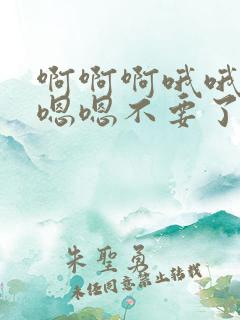 啊啊啊哦哦
嗯嗯不要了
朱聖勇
未经同意禁止转载